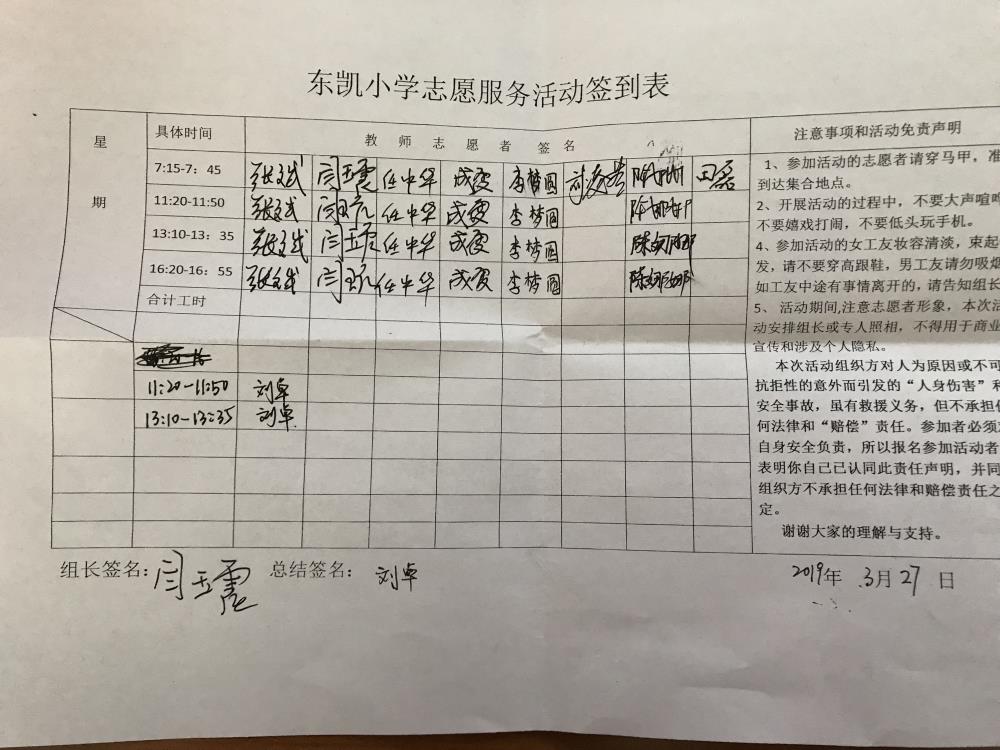 东凯小学志愿服务活动签到表
星期 具体时间 教师志愿者签名 注意事项和活动免责声明
7:15-7：45 张斌 闫玉霞 任中华 成雯 李梦圆 田磊
11:20-11:50 张斌 任中华 成雯 李梦圆
13:10-13：35 张斌 闫玉霞 任中华 成雯 李梦圆 陈娜娜
16:20-16：55 张斌 任中华 成雯 李梦圆 陈娜娜
合计工时
11:20-11:50 刘卓
13:10-13:35 刘卓
1、参加活动的志愿者请穿马甲，准
到达集合地点。
2、开展活动的过程中，不要大声喧哗
不要嬉戏打闹，不要低头玩手机。
4、参加活动的女工友妆容清淡，束起
发，请不要穿高跟鞋，男工友请勿吸烟
如工友中途有事情离开的，请告知组长
5、活动期间,注意志愿者形象，本次活
动安排组长或专人照相，不得用于商业
宣传和涉及个人隐私。
本次活动组织方对人为原因或不可
抗拒性的意外而引发的“人身伤害”和
安全事故，虽有救援义务，但不承担任
何法律和“赔偿”责任。参加者必须对
自身安全负责，所以报名参加活动者
表明你自己已认同此责任声明，并同
组织方不承担任何法律和赔偿责任之
定。
谢谢大家的理解与支持。
组长签名：闫玉霞 总结签名： 刘卓 2019年 3月27日